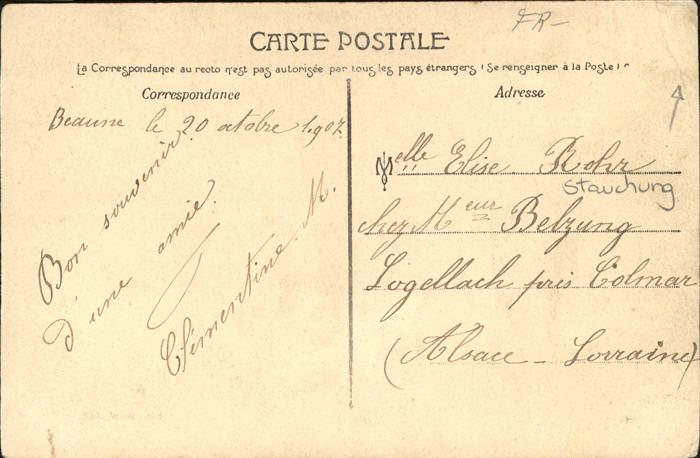 FR-
CARTE POSTALE
La Correspondance au recto n'est pas autorisée par tous les pays étrangers (Se renseigner à la Poste)
Correspondance
Beaune le 20 octobre 1907.
Bon souvenir
d'une amie.
Clémentine. M.
Adresse
Melle Elise Rohr
Stauchung
chez Meur Belzung
Logellach près Colmar
(Alsace - Lorraine)